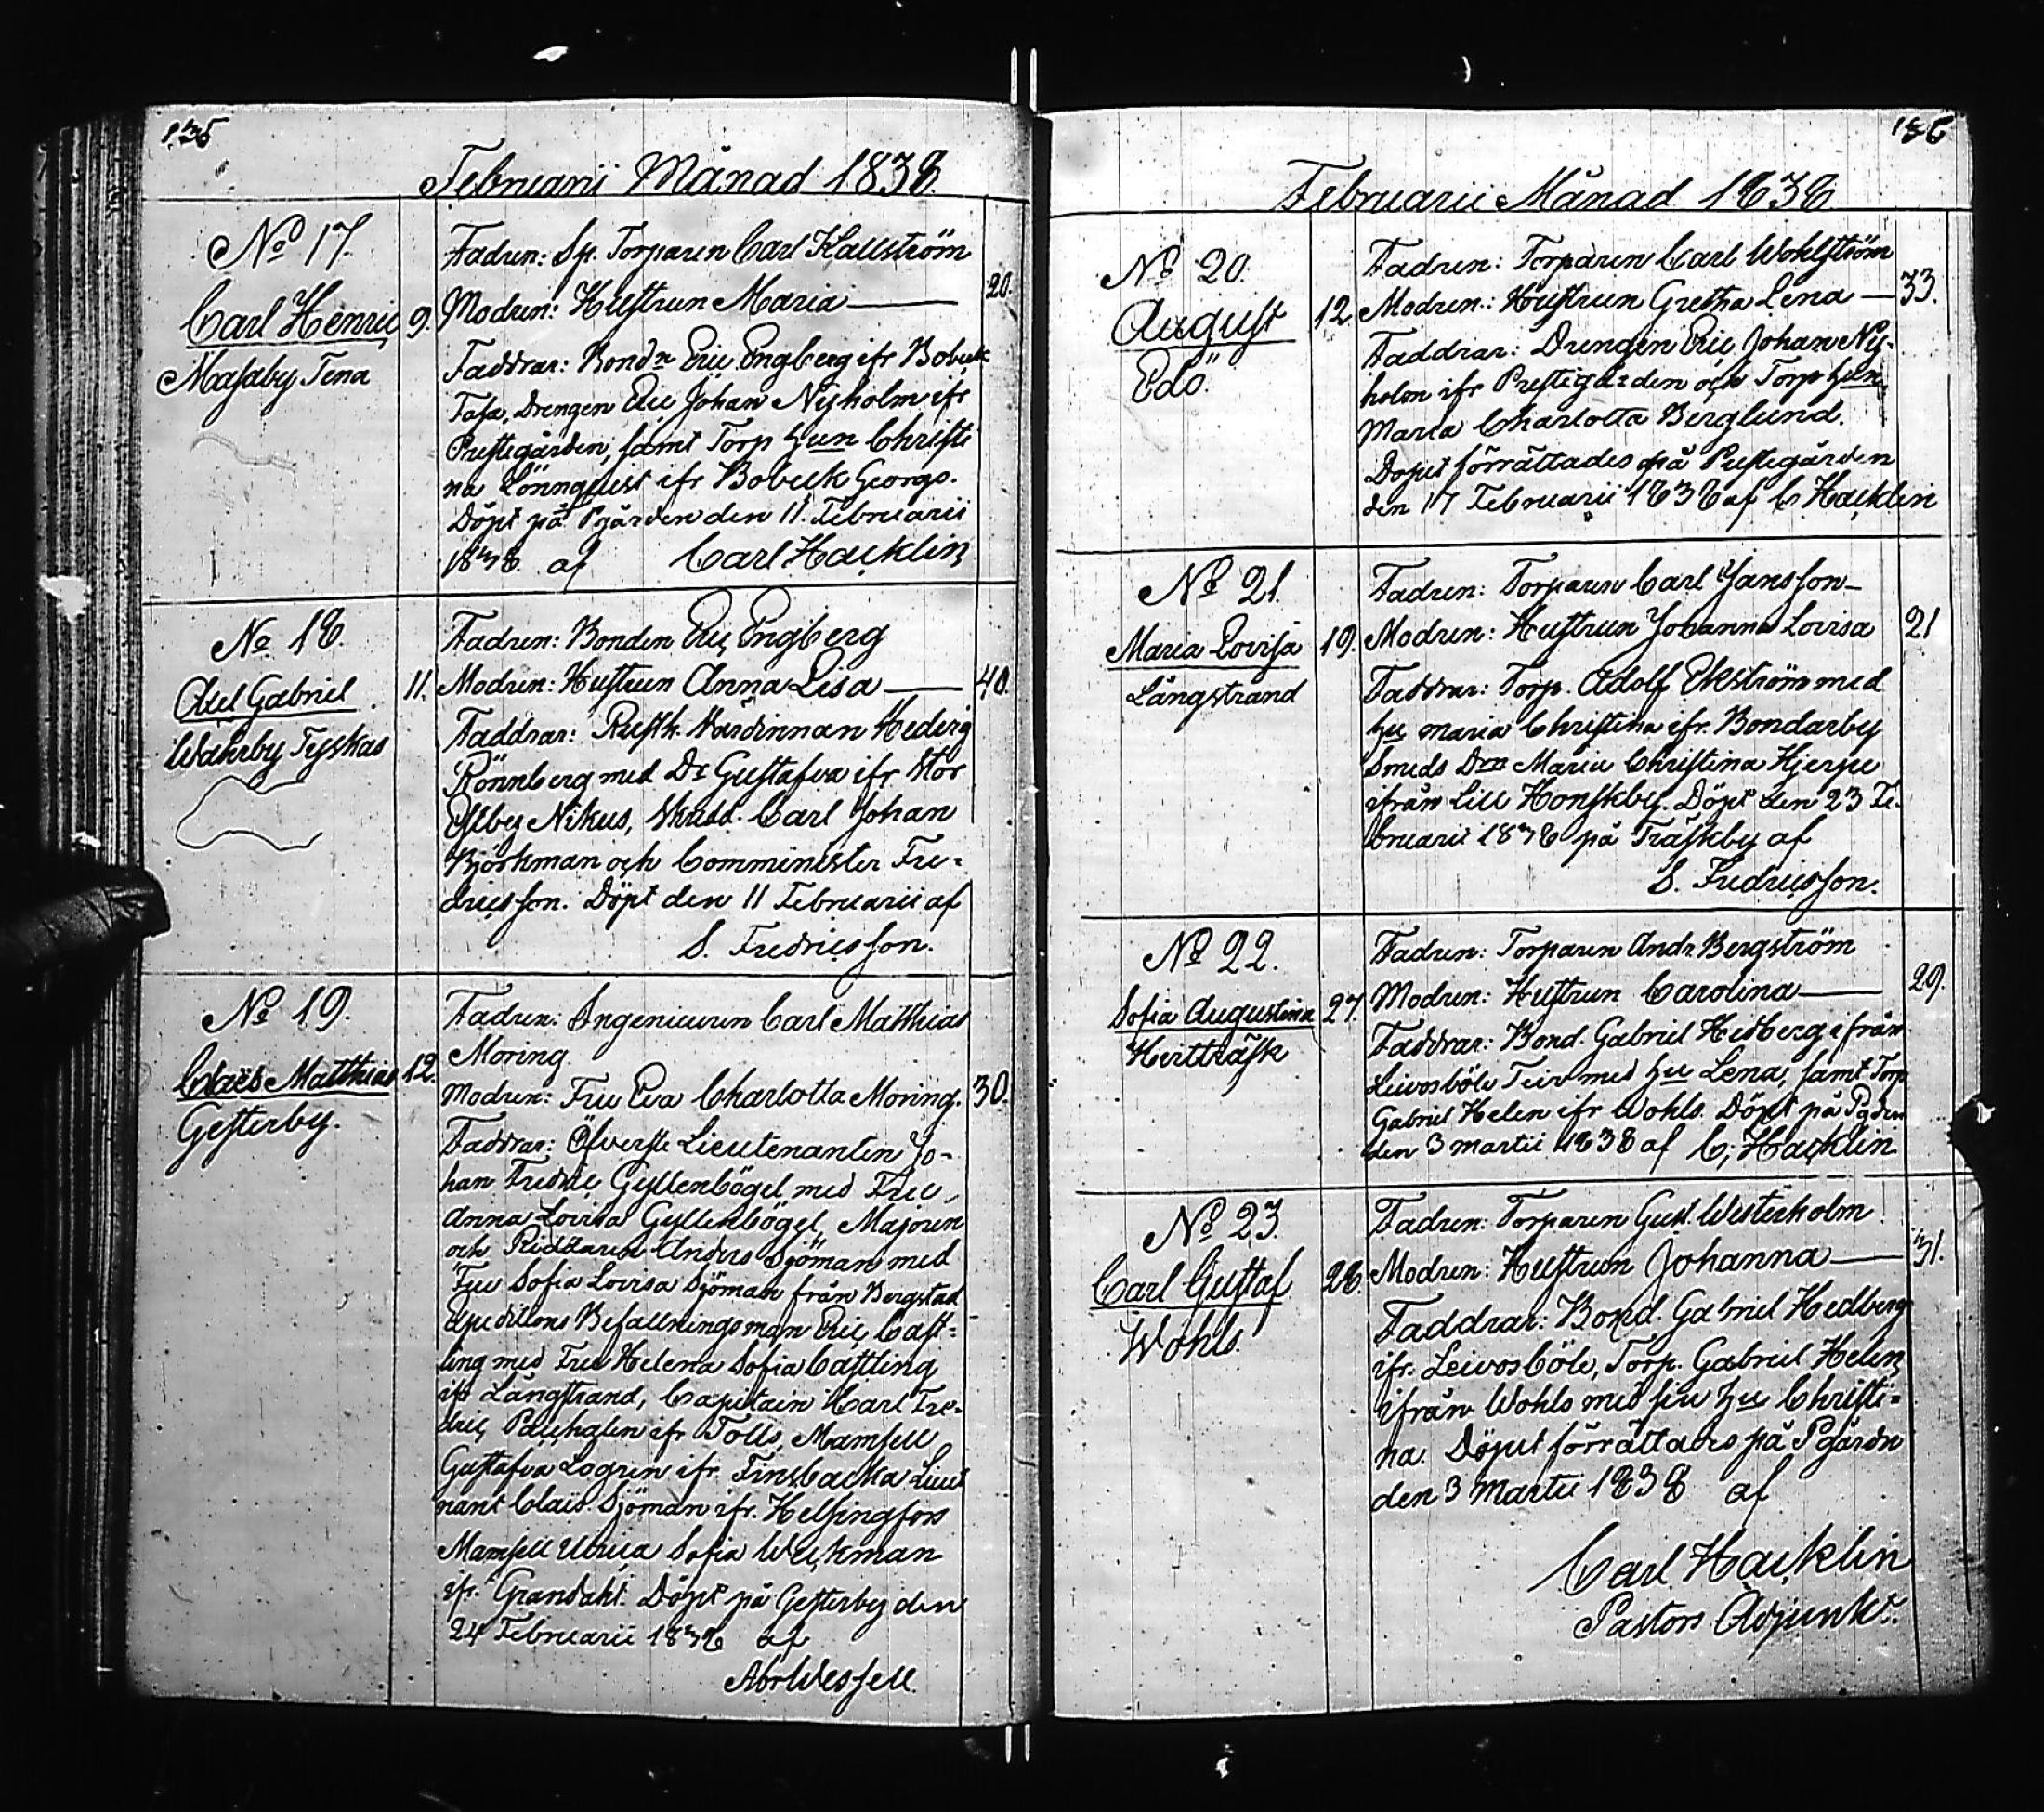 135
Februarii Månad 1838.
No 17.
Carl Henric
Masaby Tena
9.
Fadren: Sp. Torparen Carl Kallström
Modren: Hustrun Maria
20.
Faddrar: Bondn Eric Engberg ifr Bobeck
Tafa, Drengen Eric Johan Nyholm ifr
Prestegården, samt Torp hun Christi
na Lönnquist ifr Bobeck Georgs.
Döpt på Pgården den 11. Februarii
1838. af Carl Hacklin
No 18.
Axel Gabriel
Wahrby Tyskas
11.
Fadren: Bonden Eric Engberg
Modren: Hustrun Anna Lisa
40.
Faddrar: Rusth. Värdinnan Hedvig
Rönnberg med Dr Gustafva ifr Stor
Esby Nikus, Stud. Carl Johan
Björkman och Comminister Fre-
dricsson. Döpt den 11 Februarii af
S. Fredricsson.
No 19.
Claës Matthias
Gesterby.
12.
Fadren: Ingenieuren Carl Matthias
Moring
Modren: Fru Eva Charlotta Moring.
30.
Faddrar: Öfverste Lieutenanten Jo-
han Fredric Gyllenbögel med Fru
Anna Lovisa Gyllenbögel, Majoren
och Riddaren Anders Sjöman med
Fru Sofia Lovisa Sjöman från Bergstad
Expeditions Befallningsman Eric Cast-
ling med Fru Helena Sofia Castling
ifr Långstrand, Capitain Carl Fre-
dric ifr Tolls, Mamsell
Gustafva Logren ifr. Finsbacka Lieut
nant Claës Sjöman ifr. Helsingfors
Mamsell Ulrica Sofia Weckman
ifr. Grandahl. Döpt på Gesterby den
24 Februarii 1838 af
Abr Wessell
136
Februarii Månad 1838
No 20.
August
Edö.
12
Fadren: Torparen Carl Wohlström
Modren: Hustrun Gretha Lena
33.
Faddrar: Drengen Eric Johan Ny-
holm ifr Prestigården och Torp hun
Maria Charlotta Berglund.
Dopet förrättades på Prestegården
den 17 Februarii 1838 af C Hacklin
No 21.
Maria Lovisa
Långstrand
19.
Fadren: Torparen Carl Jansson
Modren: Hustrun Johanna Lovisa
21
Faddrar: Torp. Adolf Ekström med
hu Maria Christina ifr. Bondarby
Smeds Drn Maria Christina Hjerpe
ifrån Lill Honskby. Döpt den 23 Fe-
bruarii 1838 på Träskby af
S. Fredricsson.
No 22.
Sofia Augustina
Hvitträsk
27.
Fadren: Torparen Andr. Bergström
Modren: Hustrun Carolina
29.
Faddrar: Bond. Gabriel Hedberg ifrån
Leivosböle Teir med hu Lena, samt Torp
Gabriel Helen ifr Wohls. Döpt på Pgården
den 3 Martii 1838 af C. Hacklin
No 23.
Carl Gustaf
Wohls.
28.
Fadren: Torparen Gust. Westerholm
Modren: Hustrun Johanna
31.
Faddrar: Bond. Gabriel Hedberg
ifr. Leivosböle, Torp. Gabriel Helen
ifrån Wohls med sin hu Christi-
na. Döpet förrättades på Pgården
den 3 Martii 1838 af
Carl Hacklin
Pastors Adjunkt.